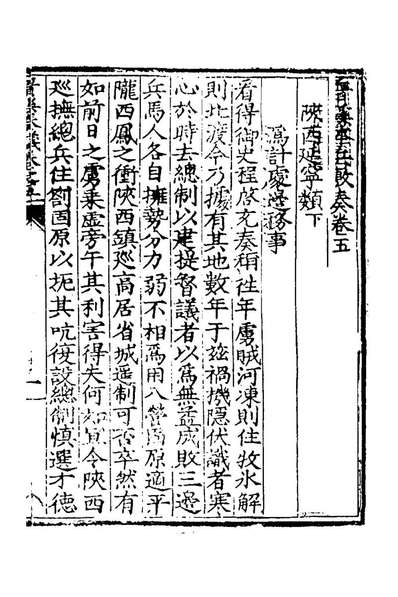 晉溪本兵敷奏卷五
陝西延寧類下
爲計處邊務事
看得御史程啓文奏稱往年虜賊河凍則住牧氷解
則北渡今乃據有其地數年于玆禍機隱伏識者寒
心於時去總制以建提督議者以爲無益成敗三邊
兵馬人各自擁勢分力弱不相爲用八營固原適平
隴西鳳之衝陝西鎮廵高居省城遥制可否卒然有
如前日之虜乗虛旁午其利害得失何如宜令陝西
廵撫總兵住劄固原以扼其吭復設總制慎選才德